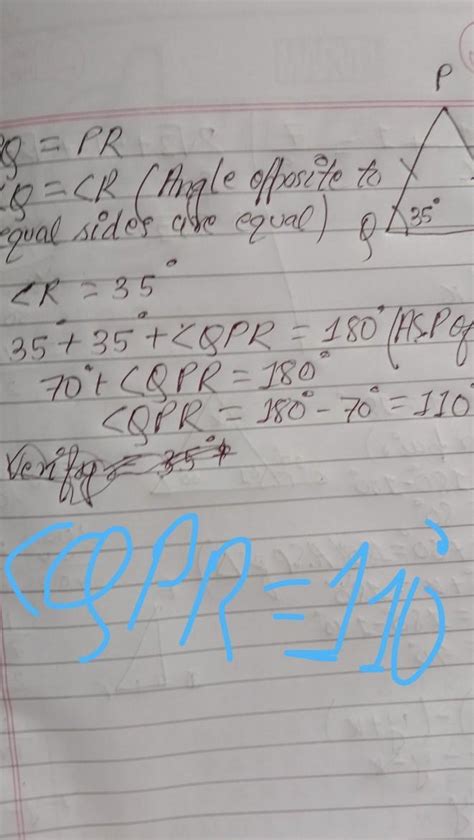 P
Q = PR
<Q = <R (Angle opposite to
equal sides are equal)
Q 35°
<R = 35°
35° + 35° + <QPR = 180° (ASP of
70° + <QPR = 180°
<QPR = 180° - 70° = 110
Verify = 35° +
<QPR = 110°